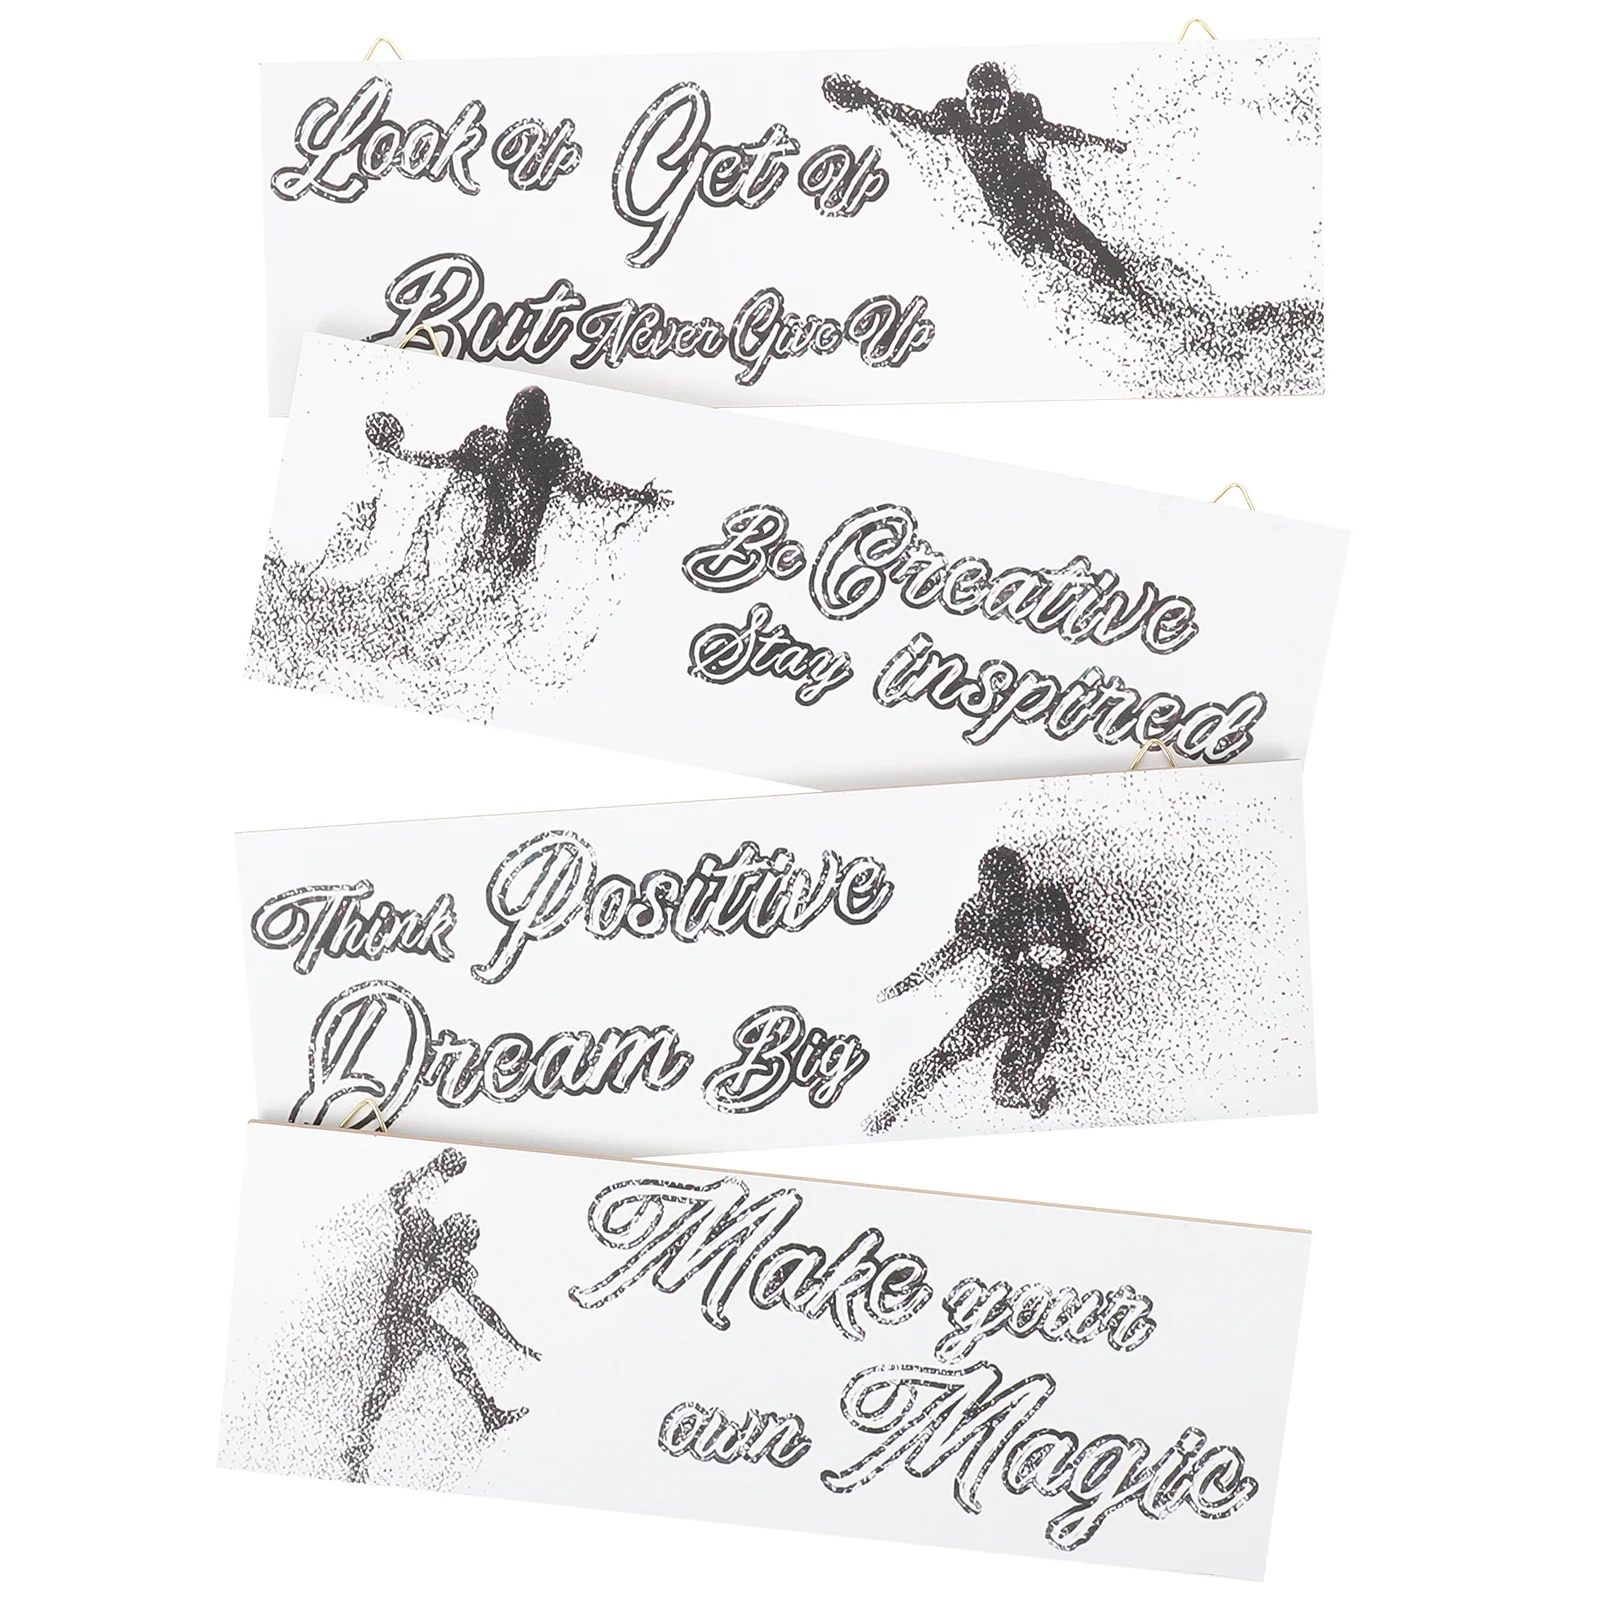 Look Up Get Up
But Never Give Up
Be Creative
Stay inspired
Think Positive
Dream Big
Make your
own Magic